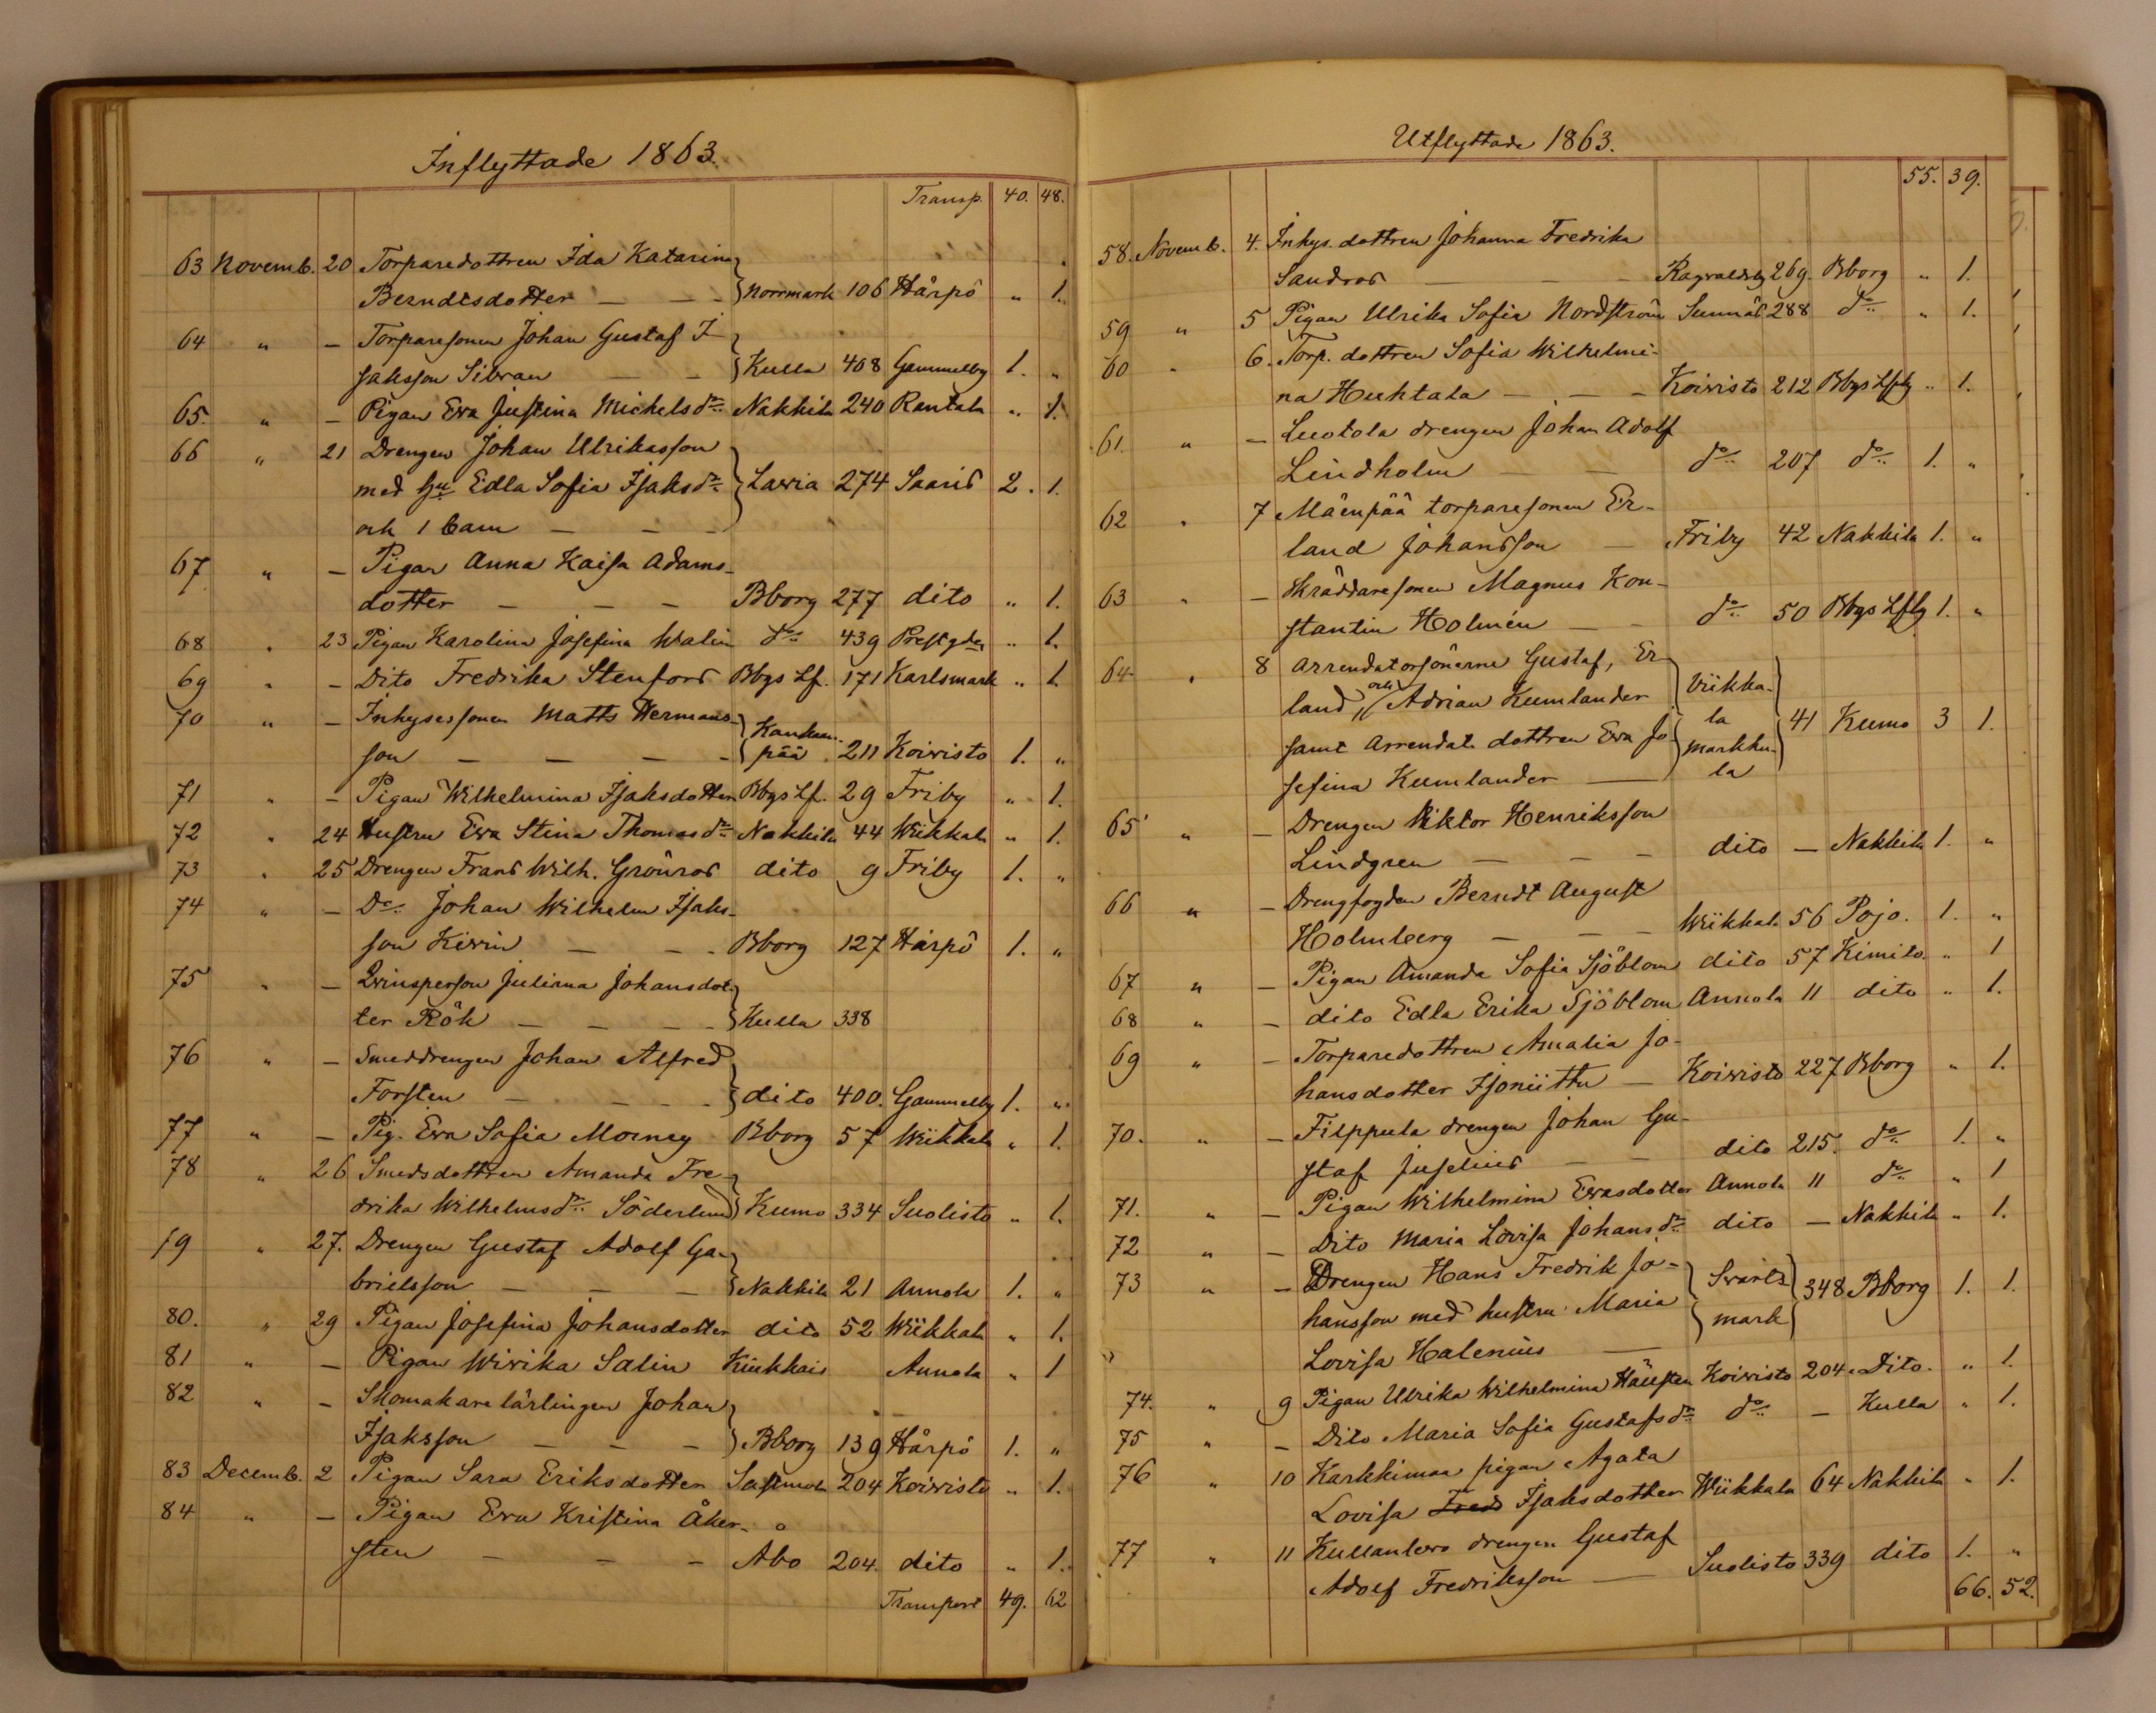 Inflyttade 1863.
Transp. 40. 48.
63 Novemb. 20 Torparedottren Ida Katarina
Berndtsdotter — — — Norrmark 106 Hårpö " 1.
64 " — Torparesonen Johan Gustaf I-
saksson Sibran — — Kulla 408 Gammelby 1. "
65. " — Pigan Eva Justina Michelsdr Nakkila 240 Rantala " 1.
66 " 21 Drengen Johan Ulriksson
med hu Edla Sofia Isaksdr Lavia 274 Saaris 2. 1.
och 1 barn — — —
67 " — Pigan Anna Kaisa Adams-
dotter — — — Bborg 277 dito " 1.
68 " 23 Pigan Karolina Josefina Walin do 439 Prestgden " 1.
69 " — Dito Fredrika Stenfors Bbgs Lf. 171 Karlsmark " 1.
70 " — Inhysessonen Matts Hermans-
son — — — — Kankaan-
pää 211 Koivisto 1. "
71 " — Pigan Wilhelmina Isaksdotter Bbgs Lf. 29 Friby " 1.
72 " 24 Hustru Eva Stina Thomasdr Nakkila 44 Wiikkala " 1.
73 " 25 Drengen Frans Wilh. Grönros dito 9 Friby 1. "
74 " — Do Johan Wilhelm Isaks-
son Kivin — — — Bborg 127 Hårpö 1. "
75 " — Qvinsperson Juliana Johansdot-
ter Rök — — — — Kulla 338
76 " — Smeddrengen Johan Alfred
Forsten — — — — dito 400. Gammelby 1. "
77 " — Pig. Eva Sofia Morney Bborg 57 Wiikkala " 1.
78 " 26 Smedsdottren Amanda Fre-
drika Wilhelmsdr Söderlund Kumo 334 Suolisto " 1.
79 " 27. Drengen Gustaf Adolf Ga-
brielsson — — — Nakkila 21 Annola 1. "
80. " 29 Pigan Josefina Johansdotter dito 52 Wiikkala " 1.
81 " — Pigan Wivika Salin Kiukkais Annola " 1
82 " — Skomakare lärlingen Johan
Isaksson — — — Bborg 139 Hårpö 1. "
83 Decemb. 2 Pigan Sara Eriksdotter Sastmola 204 Koivisto " 1.
84 " — Pigan Eva Kristina Åker-
sten — — — Åbo 204. dito " 1.
Transport 49. 62
Utflyttade 1863.
55. 39.
58. Novemb. 4. Inhys. dottren Johanna Fredrika
Sandros — — Ragvaldsby 269. Bborg " 1.
59 " 5 Pigan Ulrika Sofia Nordström Sunnäs 288 do " 1.
60 " 6. Torp. dottren Sofia Wilhelmi-
na Huhtala — — — Koivisto 212 Bbgs Lfsg " 1.
61. " — Luotola drengen Johan Adolf
Lindholm — — do 207 do 1. "
62 " 7 Mäenpää torparesonen Er-
land Johansson — Friby 42 Nakkila 1. "
63 " — Skräddaresonen Magnus Kon-
stantin Holmén — — do 50 Bbgs Lfsg 1. "
64 " 8 Arrendatorsönerna Gustaf, Er-
land, och Adrian Kumlander
samt Arrendat. dottren Eva Jo-
sefina Kumlander — Viikka-
la
Markku-
la 41 Kumo 3 1.
65 " — Drengen Viktor Henriksson
Lindgren — — — dito — Nakkila 1. "
66 " — Drengfogden Berndt August
Holmberg — — — Wiikkala 56 Pojo. 1. "
67 " — Pigan Amanda Sofia Sjöblom dito 57 Kimito. " 1
68 " — dito Edla Erika Sjöblom Annola 11 dito " 1.
69 " — Torparedottren Amalia Jo-
hansdotter Isoniittu — Koivisto 227 Bborg " 1.
70. " — Filppula drengen Johan Gu-
staf Juselius — — dito 215. do 1. "
71. " — Pigan Wilhelmina Evasdotter Annola 11 do " 1
72 " — Dito Maria Lovisa Johansdr dito — Nakkila " 1.
73 " — Drengen Hans Fredrik Jo-
hansson med hustru Maria
Lovisa Halenius — Svarts
mark 348 Bborg 1. 1.
74. " 9 Pigan Ulrika Wilhelmina Koivisto 204. Dito. " 1.
75 " — Dito Maria Sofia Gustafsdr do — Kulla " 1.
76 " 10 Karkkimaa pigan Agata
Lovisa Freds Isaksdotter Wiikkala 64 Nakkila " 1.
77 " 11 Kullanlevo drengen Gustaf
Adolf Fredriksson — Suolisto 339 dito 1. "
66. 52.